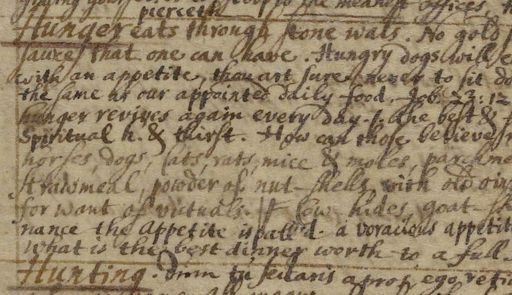 to the meanest offices,
pierceth
Hunger eats through stone wals. No gold
sauce that one can have. Hungry dogs will e
with an appetite, thou art sure never to sit do
the same as our appointed daily food, Job. 23:12
hunger revives again every day. the best &
Spiritual h. & thirst. How can those believe
horses, dogs, cats, rats, mice & moles, parchme
strawmeal, powder of nut-shells, with old
for want of victuals. Cow hides, goat
nance the Appetite is pall'd. a voracious appetit
What is the best dinner worth to a full-
Hunting. Dum a prof. ego